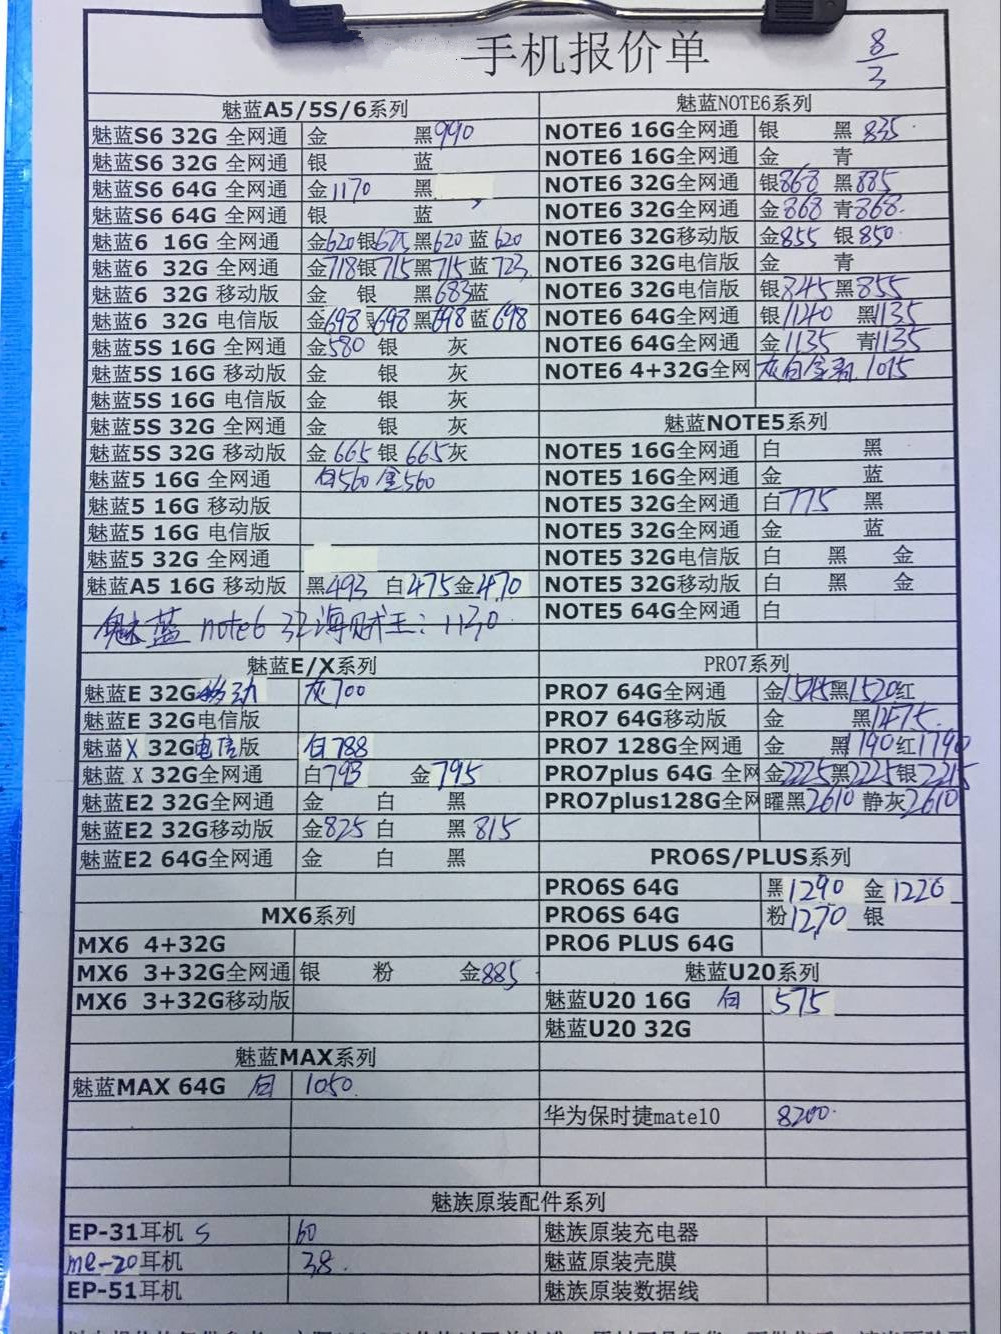 手机报价单
8/3
魅蓝A5/5S/6系列
魅蓝S6 32G 全网通 金 黑990
魅蓝S6 32G 全网通 银 蓝
魅蓝S6 64G 全网通 金1170 黑
魅蓝S6 64G 全网通 银 蓝
魅蓝6 16G 全网通 金620银625黑620 蓝620
魅蓝6 32G 全网通 金718银715黑715蓝723
魅蓝6 32G 移动版 金 银 黑683蓝
魅蓝6 32G 电信版 金698 698 黑698 蓝698
魅蓝5S 16G 全网通 金580 银 灰
魅蓝5S 16G 移动版 金 银 灰
魅蓝5S 16G 电信版 金 银 灰
魅蓝5S 32G 全网通 金 银 灰
魅蓝5S 32G 移动版 金665 银665灰
魅蓝5 16G 全网通 白560 金560
魅蓝5 16G 移动版
魅蓝5 16G 电信版
魅蓝5 32G 全网通
魅蓝A5 16G 移动版 黑493 白475金470
魅蓝 note6 32海贼王:1130
魅蓝E/X系列
魅蓝E 32G移动 灰700
魅蓝E 32G电信版
魅蓝X 32G电信版 白788
魅蓝X 32G全网通 白793 金795
魅蓝E2 32G全网通 金 白 黑
魅蓝E2 32G移动版 金825 白 黑815
魅蓝E2 64G全网通 金 白 黑
MX6系列
MX6 4+32G
MX6 3+32G全网通 银 粉 金885
MX6 3+32G移动版
魅蓝MAX系列
魅蓝MAX 64G 白 1050
魅蓝NOTE6系列
NOTE6 16G全网通 银 黑835
NOTE6 16G全网通 金 青
NOTE6 32G全网通 银868 黑885
NOTE6 32G全网通 金868 青868
NOTE6 32G移动版 金855 银850
NOTE6 32G电信版 金 青
NOTE6 32G电信版 银845 黑855
NOTE6 64G全网通 银1140 黑1135
NOTE6 64G全网通 金1135 青1135
NOTE6 4+32G全网 灰白金 1015
魅蓝NOTE5系列
NOTE5 16G全网通 白 黑
NOTE5 16G全网通 金 蓝
NOTE5 32G全网通 白775 黑
NOTE5 32G全网通 金 蓝
NOTE5 32G电信版 白 黑 金
NOTE5 32G移动版 白 黑 金
NOTE5 64G全网通 白
PRO7系列
PRO7 64G全网通 金1545黑1520红
PRO7 64G移动版 金 黑1475
PRO7 128G全网通 金 黑1790红1790
PRO7plus 64G 全网 金2225黑2225银2215
PRO7plus128G全网 曜黑2610 静灰2610
PRO6S/PLUS系列
PRO6S 64G 黑1290 金1226
PRO6S 64G 粉1270 银
PRO6 PLUS 64G
魅蓝U20系列
魅蓝U20 16G 白 575
魅蓝U20 32G
华为保时捷mate10 8200
魅族原装配件系列
EP-31耳机 S 60
me-20耳机 38
EP-51耳机
魅族原装充电器
魅蓝原装壳膜
魅族原装数据线